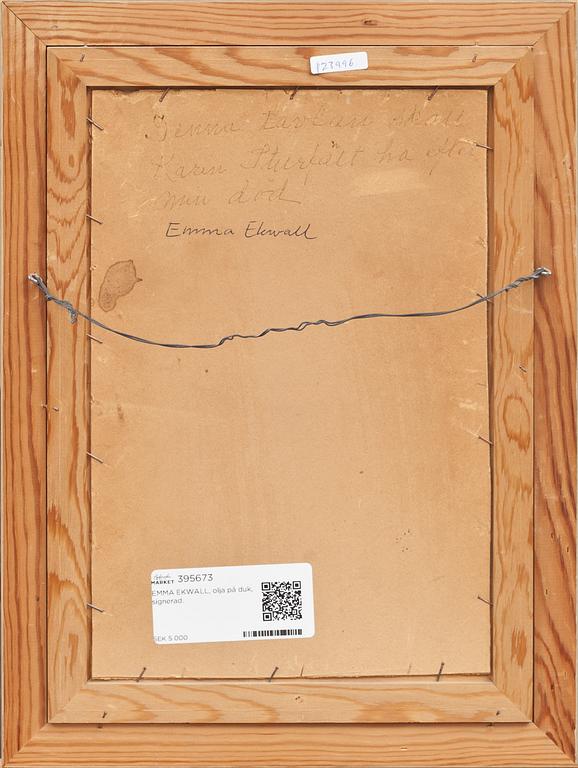 123996
Denna tavlan skall
Karin Sturfält ha efter
min död
Emma Ekwall
MARKET 395673
EMMA EKWALL, olja på duk,
signerad.
SEK 5 000